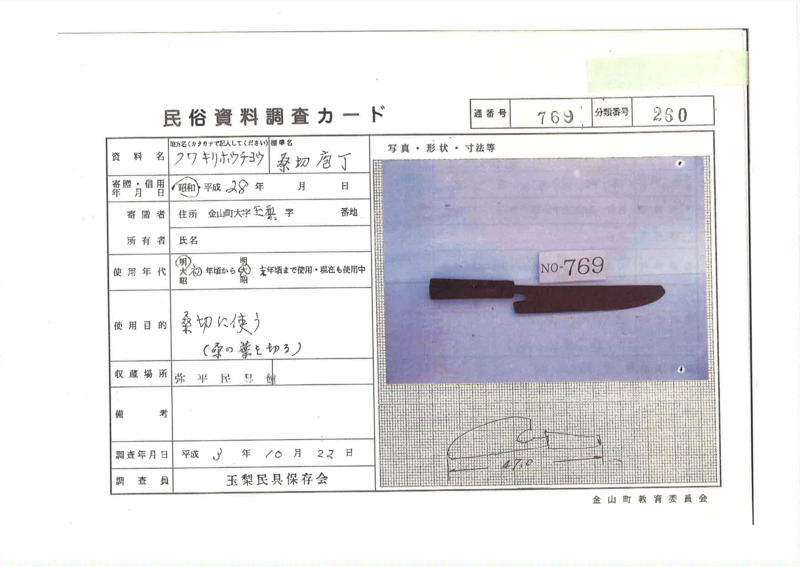 民俗資料調査カード
通番号 769 分類番号 260
資料名
地方名(カタカナで記入してください) 標準名
クワキリホウチョウ 桑切庖丁
寄贈・借用年月日 昭和・平成 28年 月 日
寄贈者 住所 金山町大字玉梨 字 番地
所有者 氏名
使用年代 明大昭 初年頃から 明大昭 末年頃まで使用・現在も使用中
使用目的 桑切に使う
(桑の葉を切る)
収蔵場所 弥平民具館
備考
調査年月日 平成 3年 10月 22日
調査員 玉梨民具保存会
写真・形状・寸法等
NO-769
47.0
金山町教育委員会